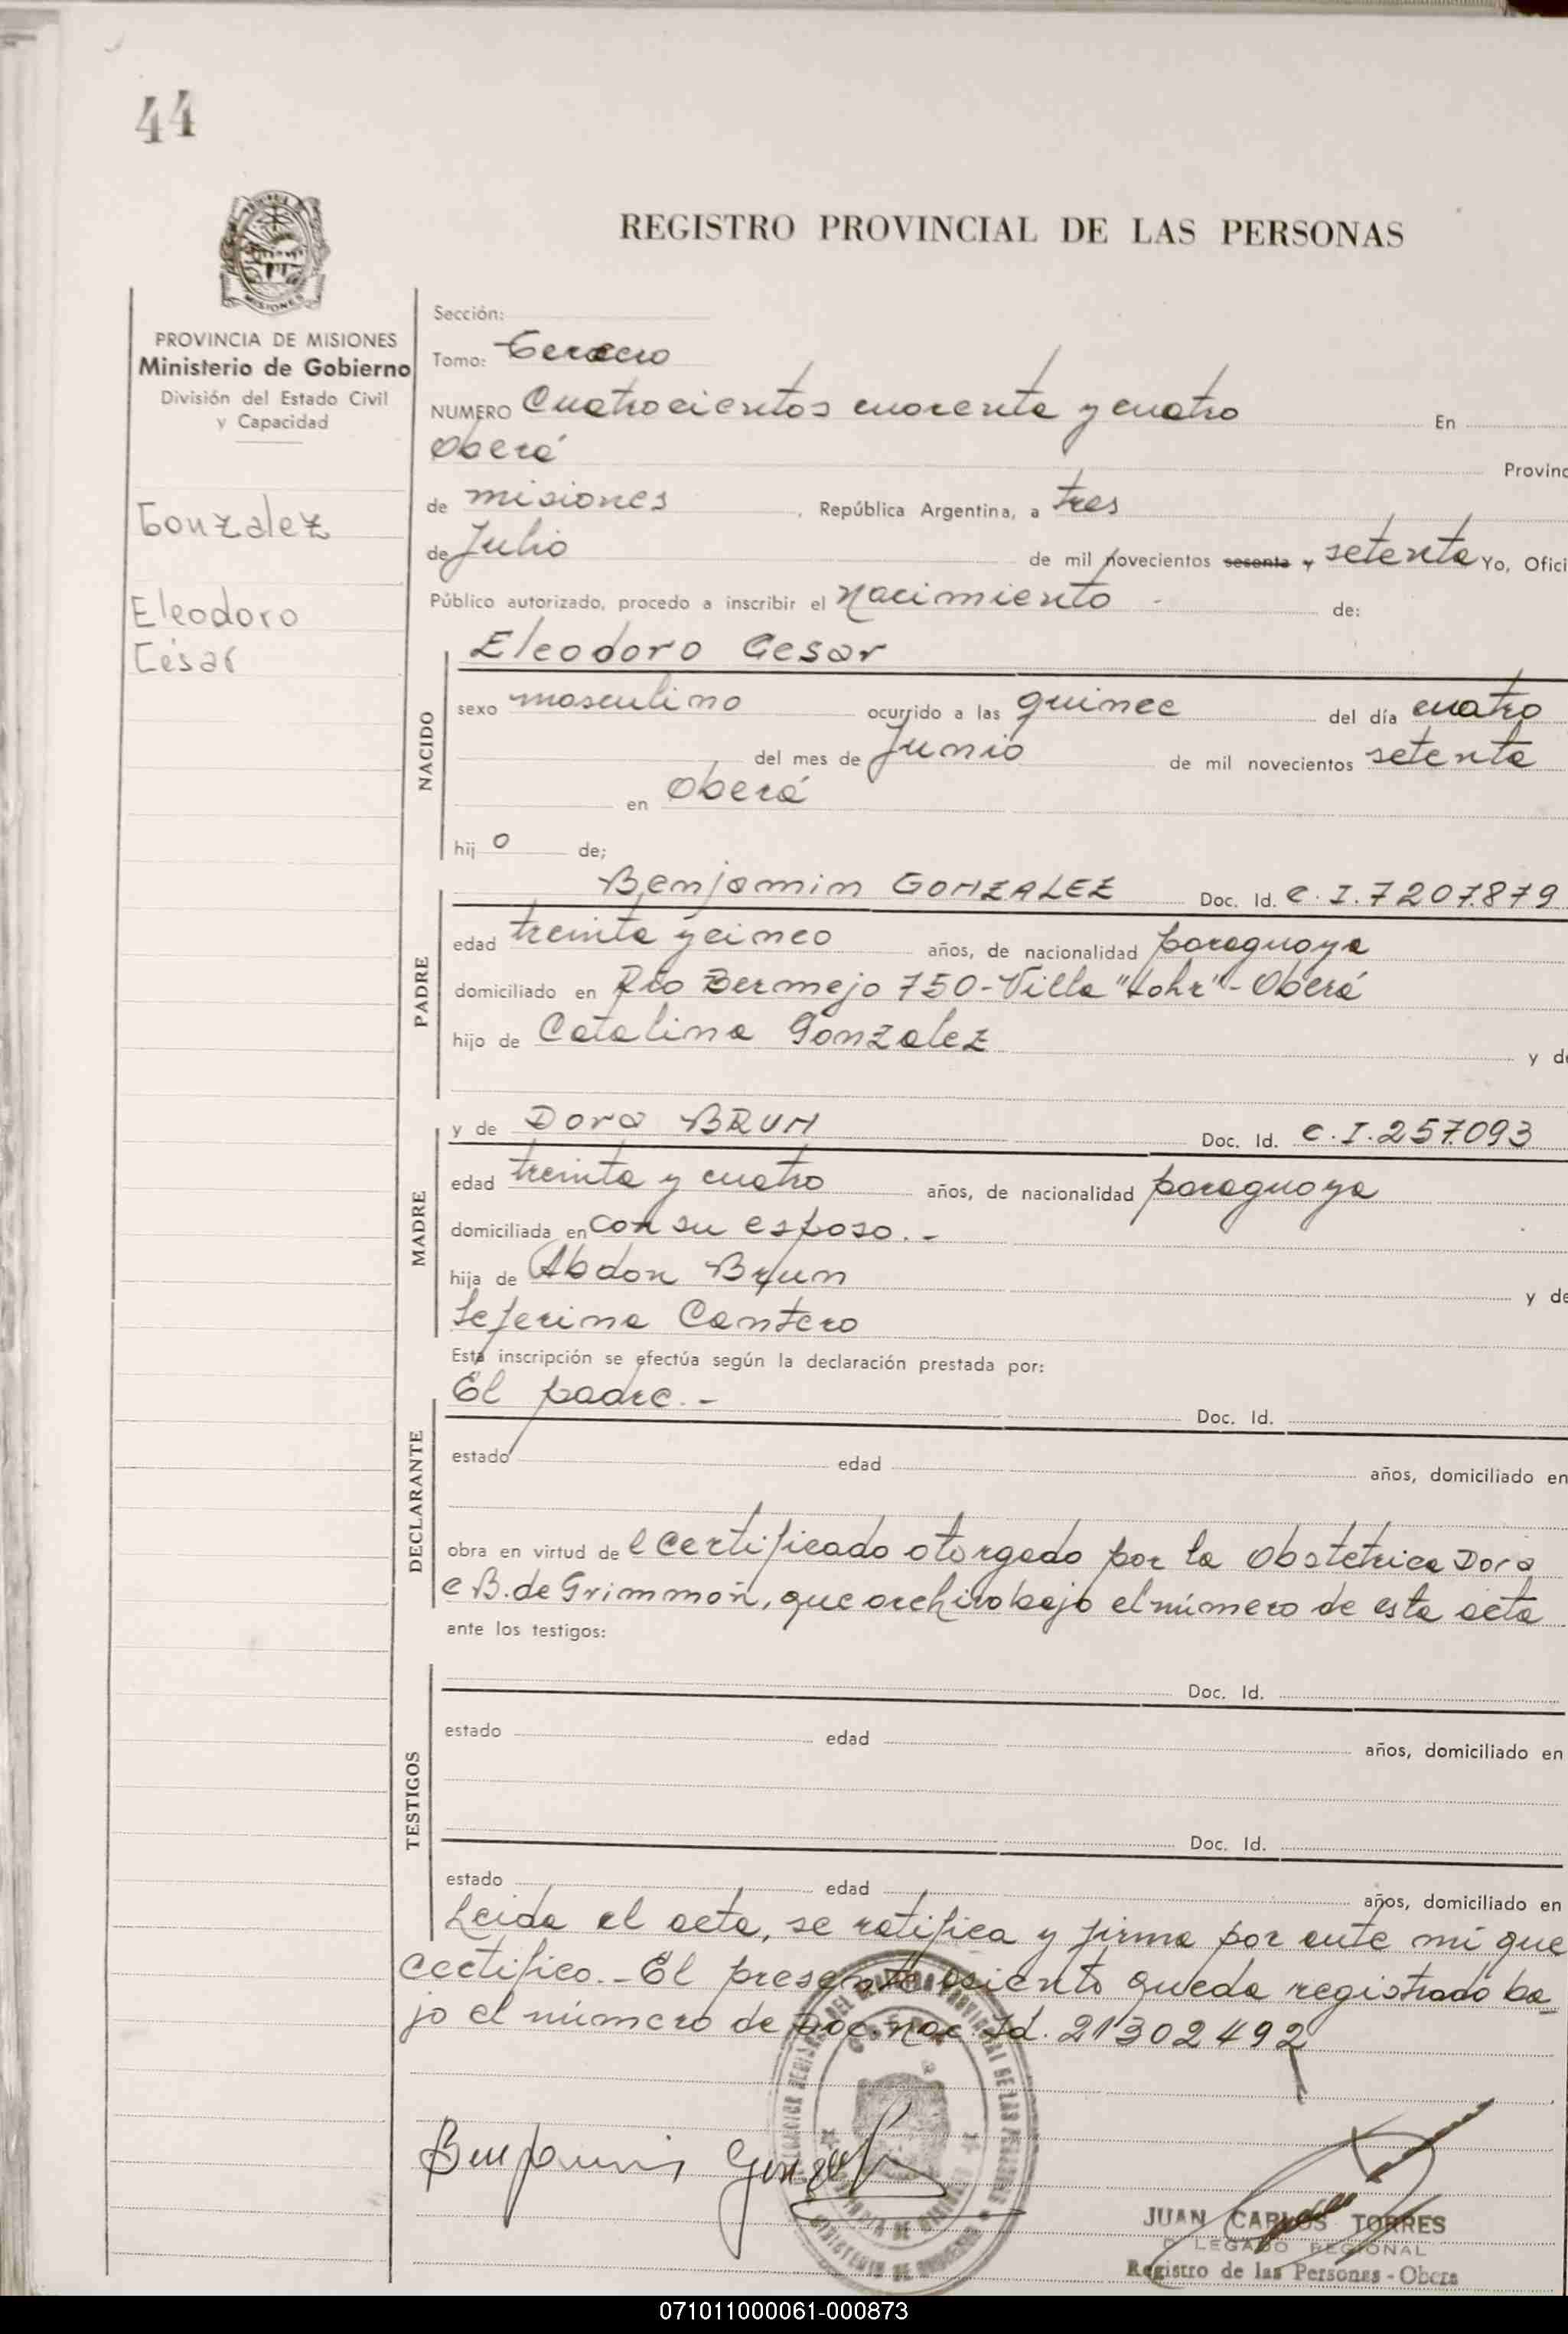 44
REGISTRO PROVINCIAL DE LAS PERSONAS
MISIONES
PROVINCIA DE MISIONES
Ministerio de Gobierno
División del Estado Civil
y Capacidad
Gonzalez
Eleodoro
César
Sección:
Tomo: Tercero
NUMERO Cuatrocientos cuarenta y cuatro En
Oberá Provinc
de misiones , República Argentina, a tres
de Julio de mil novecientos sesenta y setenta Yo, Ofici
Público autorizado, procedo a inscribir el nacimiento - de:
NACIDO
Eleodoro Cesar
sexo masculino ocurrido a las quince del día cuatro
del mes de Junio de mil novecientos setenta
en Oberá
hij o de;
PADRE
Benjamin GONZALEZ Doc. Id. C.I. 7207.879
edad treinta y cinco años, de nacionalidad paraguaya
domiciliado en Río Bermejo 750-Villa "Lohr"-Oberá
hijo de Catalina Gonzalez y de
MADRE
y de Dora BRUN Doc. Id. C.I. 257.093
edad treinta y cuatro años, de nacionalidad paraguaya
domiciliada en con su esposo.-
hija de Abdon Brun y de
Seferina Cantero
Esta inscripción se efectúa según la declaración prestada por:
DECLARANTE
El padre.- Doc. Id.
estado edad años, domiciliado en
obra en virtud de l certificado otorgado por la Obstetrica Dora
C B. de Grimmon, que archivo bajo el número de esta acta
ante los testigos:
TESTIGOS
Doc. Id.
estado edad años, domiciliado en
Doc. Id.
estado edad años, domiciliado en
Leida el acta, se ratifica y firma por ante mí que
certifico.-El presente asiento queda registrado ba-
jo el número de Doc. nac. Id. 21302492
Benjamin Gonzalez
JUAN CARLOS TORRES
DELEGADO REGIONAL
Registro de las Personas - Obera
071011000061-000873